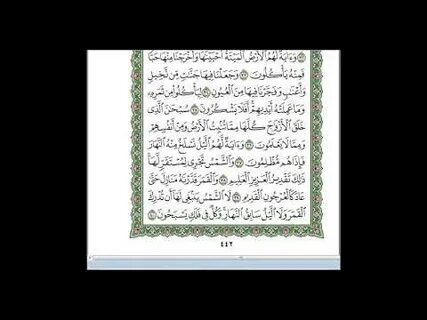 وَءَايَةٌ لَّهُمُ ٱلْأَرْضُ ٱلْمَيْتَةُ أَحْيَيْنَٰهَا وَأَخْرَجْنَا مِنْهَا حَبًّا
فَمِنْهُ يَأْكُلُونَ ٣٣ وَجَعَلْنَا فِيهَا جَنَّٰتٍ مِّن نَّخِيلٍ
وَأَعْنَٰبٍ وَفَجَّرْنَا فِيهَا مِنَ ٱلْعُيُونِ ٣٤ لِيَأْكُلُوا۟ مِن ثَمَرِهِۦ
وَمَا عَمِلَتْهُ أَيْدِيهِمْ أَفَلَا يَشْكُرُونَ ٣٥ سُبْحَٰنَ ٱلَّذِى
خَلَقَ ٱلْأَزْوَٰجَ كُلَّهَا مِمَّا تُنۢبِتُ ٱلْأَرْضُ وَمِنْ أَنفُسِهِمْ
وَمِمَّا لَا يَعْلَمُونَ ٣٦ وَءَايَةٌ لَّهُمُ ٱلَّيْلُ نَسْلَخُ مِنْهُ ٱلنَّهَارَ
فَإِذَا هُم مُّظْلِمُونَ ٣٧ وَٱلشَّمْسُ تَجْرِى لِمُسْتَقَرٍّ لَّهَا
ذَٰلِكَ تَقْدِيرُ ٱلْعَزِيزِ ٱلْعَلِيمِ ٣٨ وَٱلْقَمَرَ قَدَّرْنَٰهُ مَنَازِلَ حَتَّىٰ
عَادَ كَٱلْعُرْجُونِ ٱلْقَدِيمِ ٣٩ لَا ٱلشَّمْسُ يَنۢبَغِى لَهَآ أَن تُدْرِكَ
ٱلْقَمَرَ وَلَا ٱلَّيْلُ سَابِقُ ٱلنَّهَارِ وَكُلٌّ فِى فَلَكٍ يَسْبَحُونَ ٤٠
٤٤٢